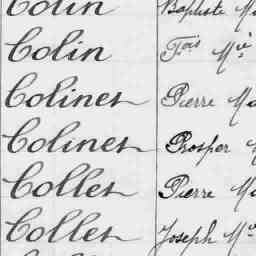 Colin Baptiste
Colin Fois Mie
Colinet Pierre
Colinet Prosper
Collet Pierre
Collet Joseph